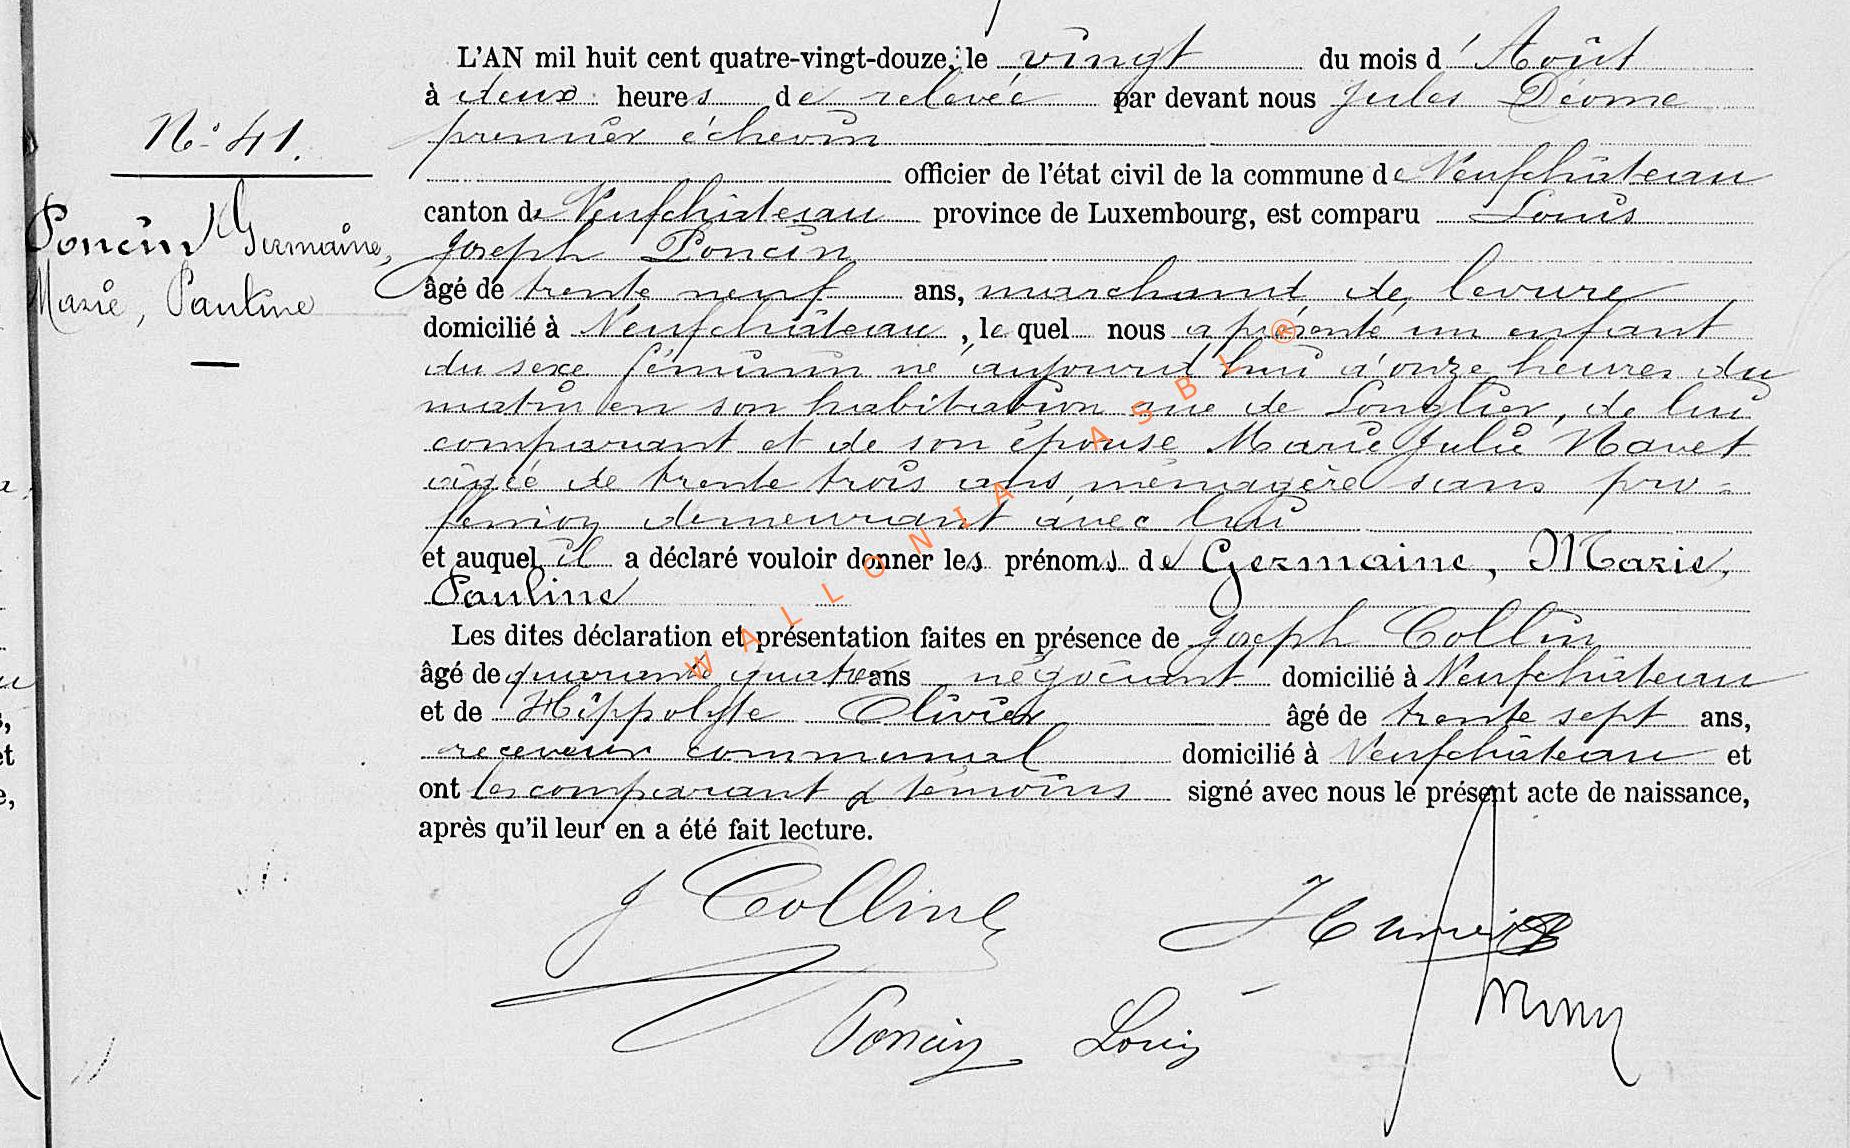 L'AN mil huit cent quatre-vingt-douze, le vingt du mois d'Août
à deux heures de relevée par devant nous Jules Déome
premier échevin
N° 41.
officier de l'état civil de la commune de Neufchâteau
canton de Neufchâteau province de Luxembourg, est comparu Louis
Poncin Germaine,
Joseph Poncin
Marie, Pauline
âgé de trente neuf ans, marchand de levure
domicilié à Neufchâteau, lequel nous a présenté un enfant
du sexe féminin né aujourd'hui à onze heures du
matin en son habitation rue de Longlier, de lui
comparant et de son épouse Marie Julie Navet
âgée de trente trois ans, ménagère sans pro-
fession demeurant avec lui
et auquel il a déclaré vouloir donner les prénoms de Germaine, Marie,
Pauline
Les dites déclaration et présentation faites en présence de Joseph Collin
âgé de quarante quatre ans négociant domicilié à Neufchâteau
et de Hippolyte Olivier âgé de trente sept ans,
receveur communal domicilié à Neufchâteau et
ont les comparant & témoins signé avec nous le présent acte de naissance,
après qu'il leur en a été fait lecture.
J Collin
Poncin Louis
WALLONIA ASBL ®